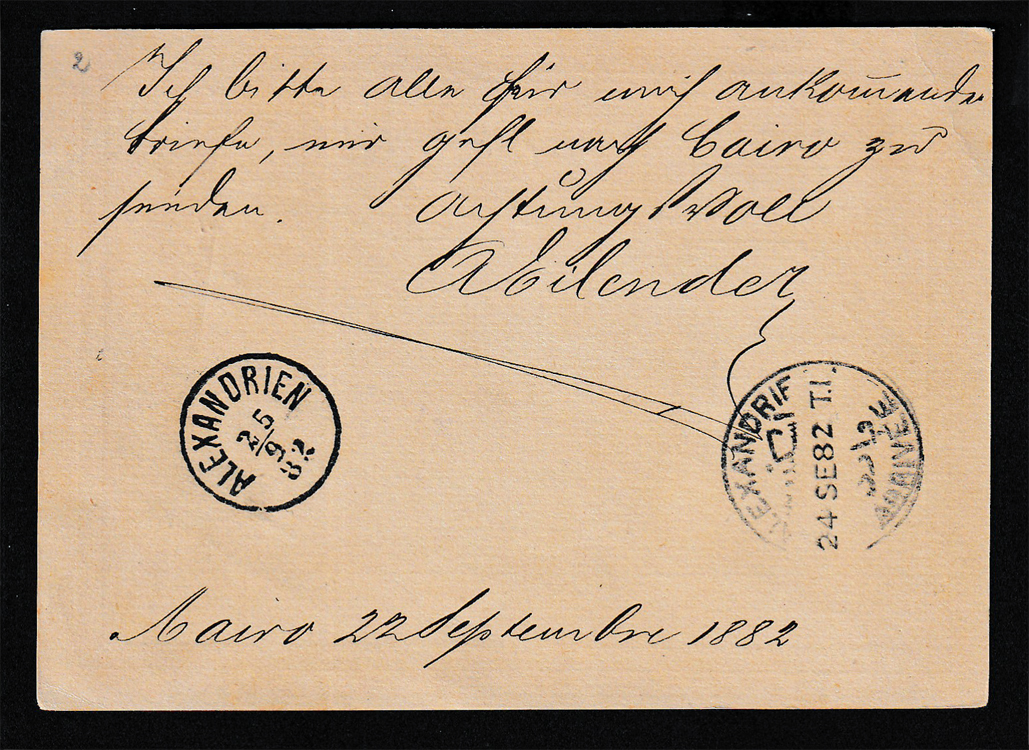 2
Ich bitte alle für mich ankommende
briefe, mir gefl nach Cairo zu
senden. Achtungsvoll
ALEXANDRIEN
25/9 82
ALEXANDRIE
24 SE 82 T.I.
ARRIVEE
Cairo 22 Septembre 1882